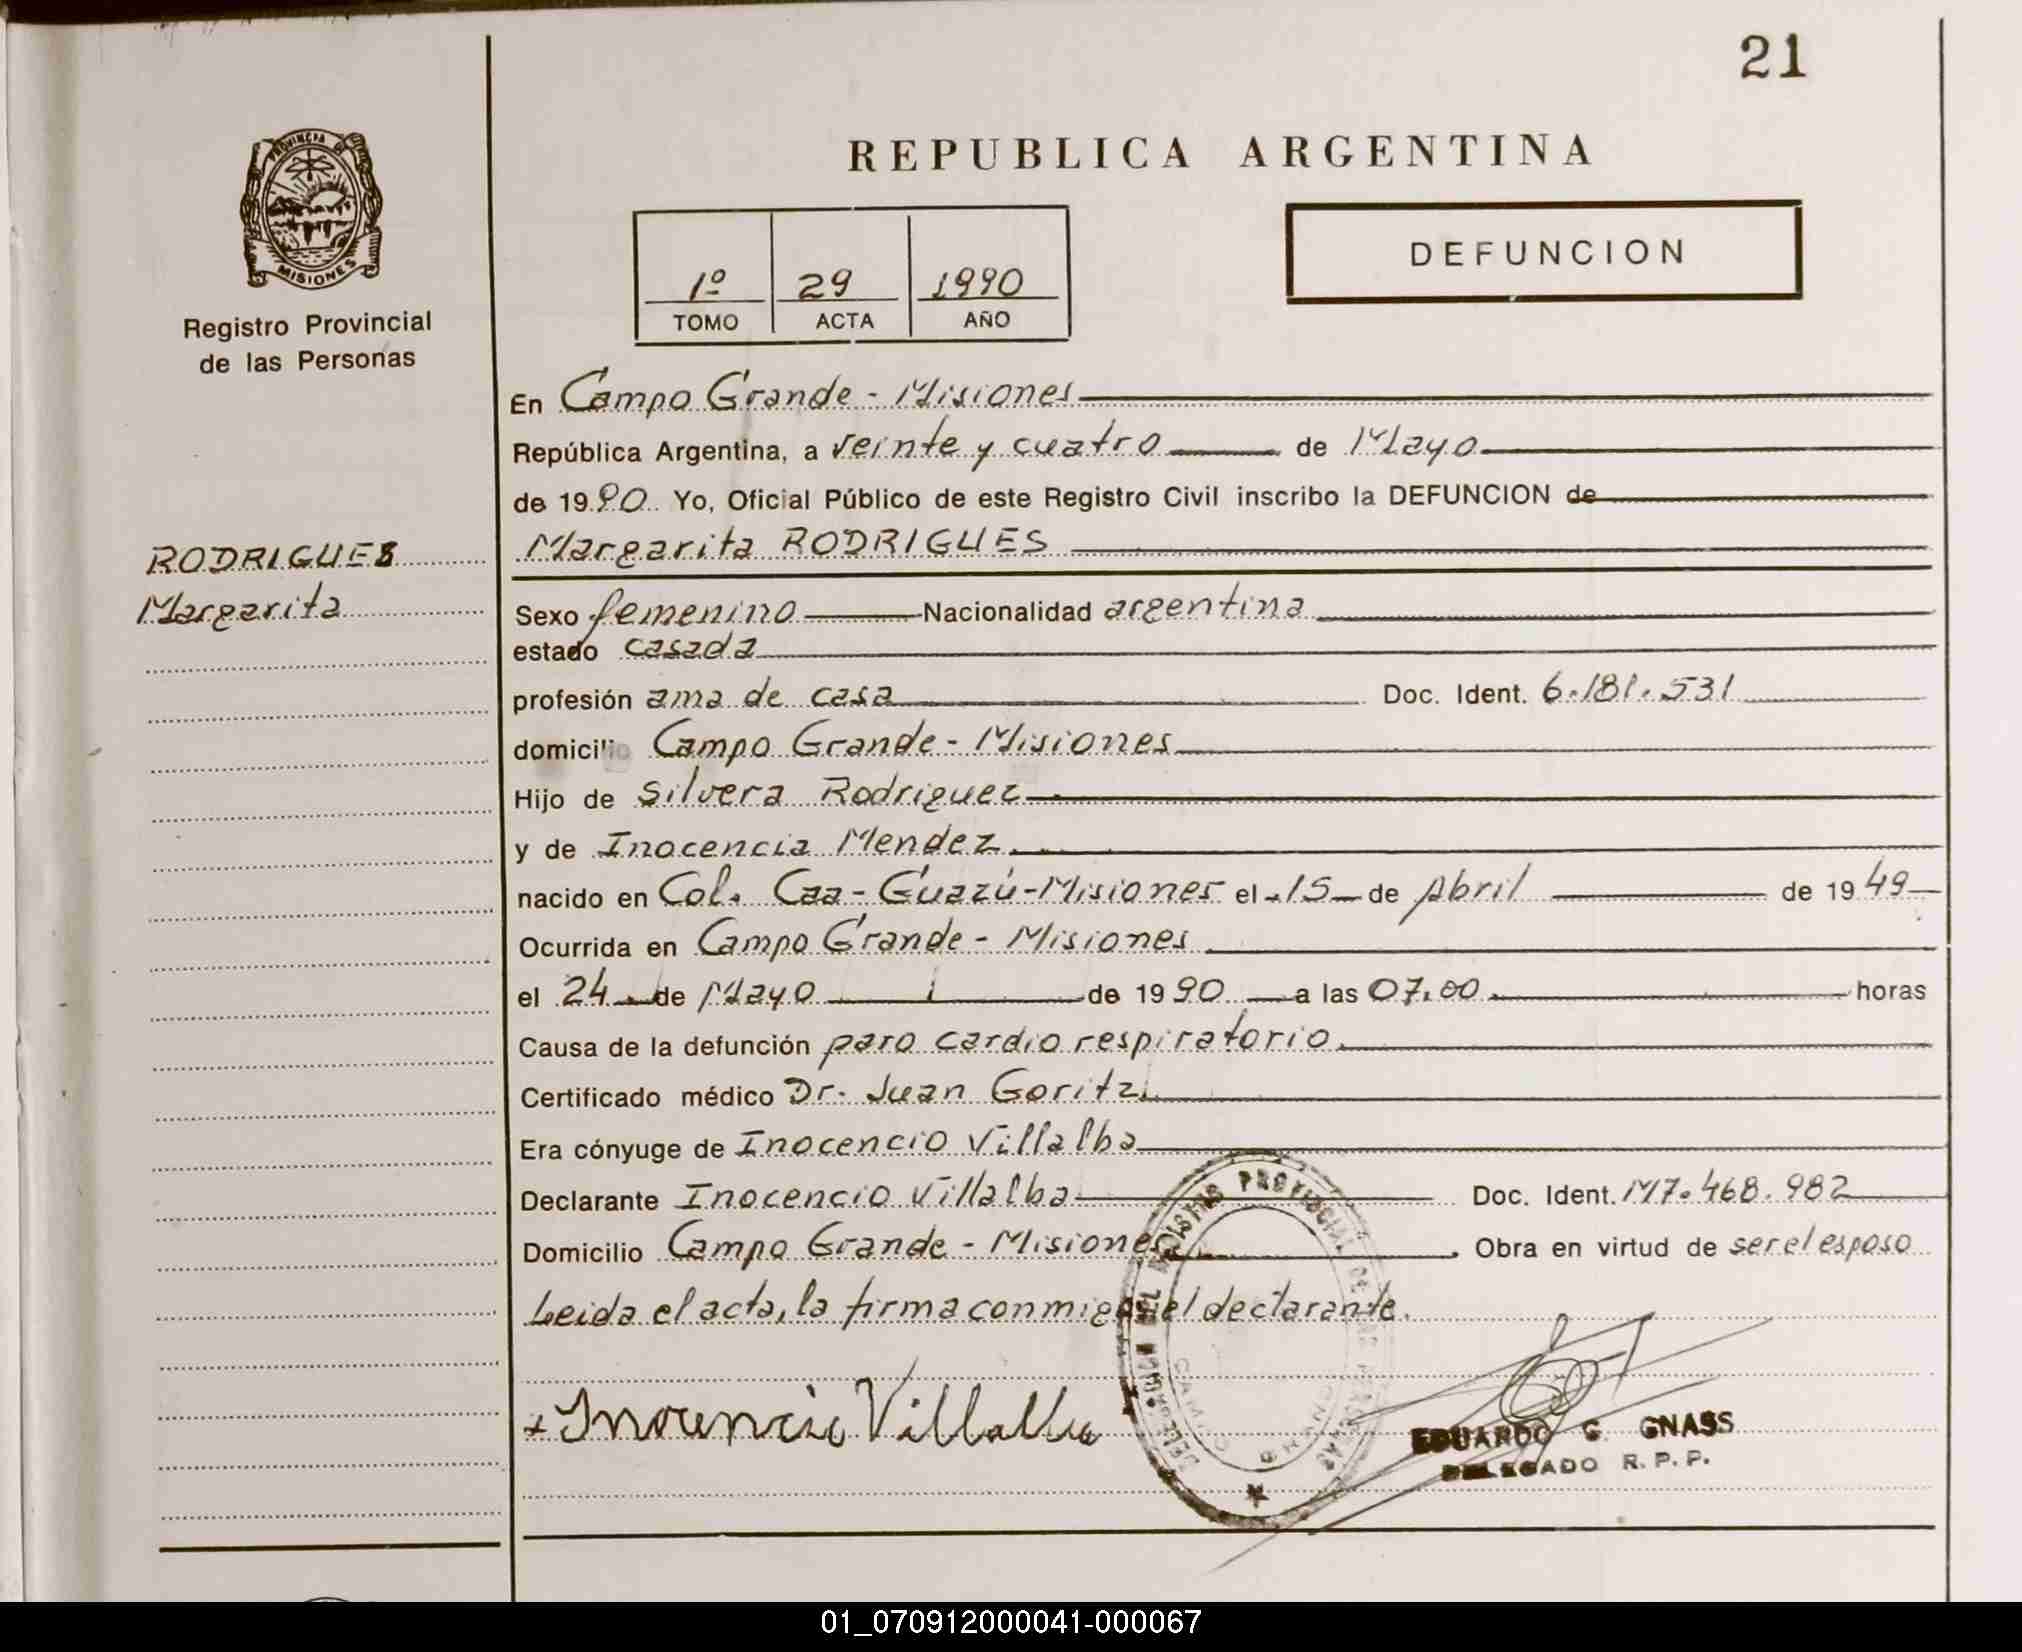 21
PROVINCIA DE
MISIONES
Registro Provincial
de las Personas
REPUBLICA ARGENTINA
1º 29 1990
TOMO ACTA AÑO
DEFUNCION
En Campo Grande - Misiones
República Argentina, a veinte y cuatro de Mayo
de 1990. Yo, Oficial Público de este Registro Civil inscribo la DEFUNCION de
RODRIGUES
Margarita
Margarita RODRIGUES
Sexo femenino Nacionalidad argentina
estado casada
profesión ama de casa Doc. Ident. 6.181.531
domicilio Campo Grande - Misiones
Hijo de Silvera Rodriguez
y de Inocencia Mendez
nacido en Col. Caa-Guazú-Misiones el 15 de Abril de 1949
Ocurrida en Campo Grande - Misiones
el 24 de Mayo de 1990 a las 07.00 horas
Causa de la defunción paro cardio respiratorio.
Certificado médico Dr. Juan Goritz
Era cónyuge de Inocencio Villalba
Declarante Inocencio Villalba Doc. Ident. M7.468.982
Domicilio Campo Grande - Misiones. Obra en virtud de ser el esposo
Leida el acta, la firma conmigo el declarante.
Inocencio Villalba
DELEGACION DEL REGISTRO PROVINCIAL DE LAS PERSONAS
CAMPO GRANDE
EDUARDO G. GNASS
DELEGADO R.P.P.
01_070912000041-000067